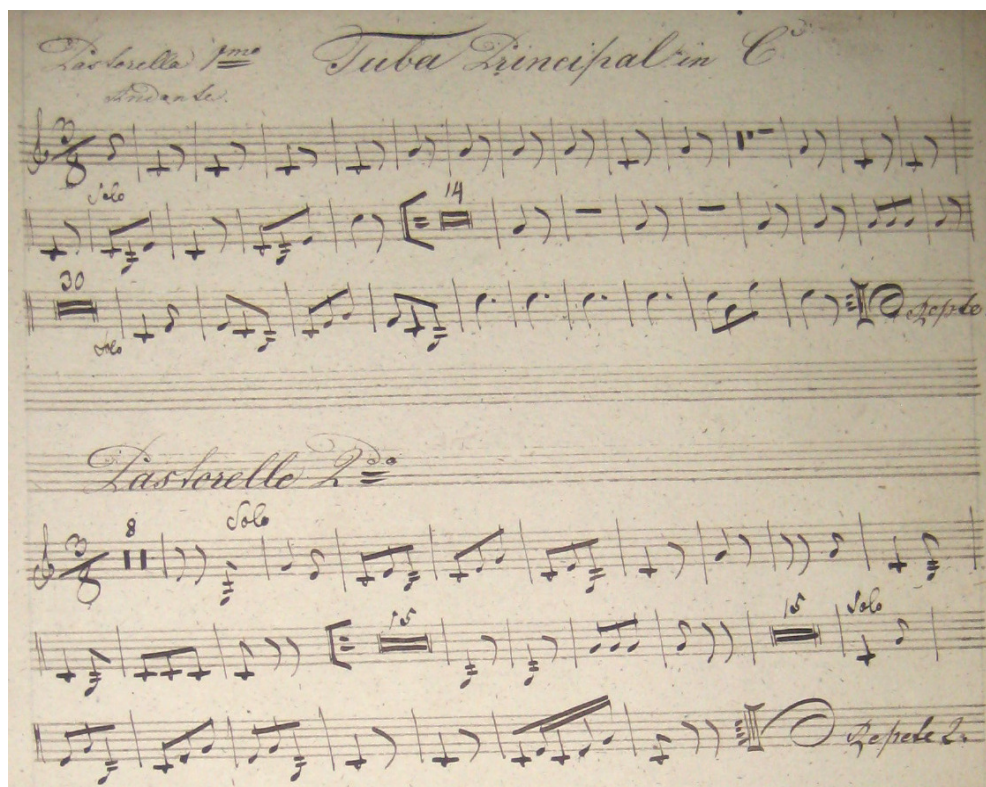 Pastorella 1mo Tuba Principal in C
Andante.
3
8
Solo 14
30
Solo Repete
Pastorella 2do
8 Solo
3
8
15 15 Solo
Repete 2.